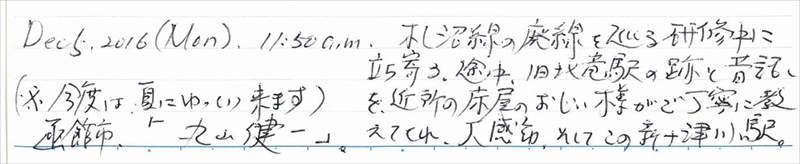 Dec 5, 2016 (Mon). 11:50 a.m. 札沼線の廃線を巡る研修中に
立ち寄る。途中、旧北竜駅の跡と昔話し
を、近所の床屋のおじい様がご丁寧に教
えてくれ、大感動。そしてこの新十津川駅。
(※今度は、夏にゆっくり来ます)
函館市、「丸山健一」。